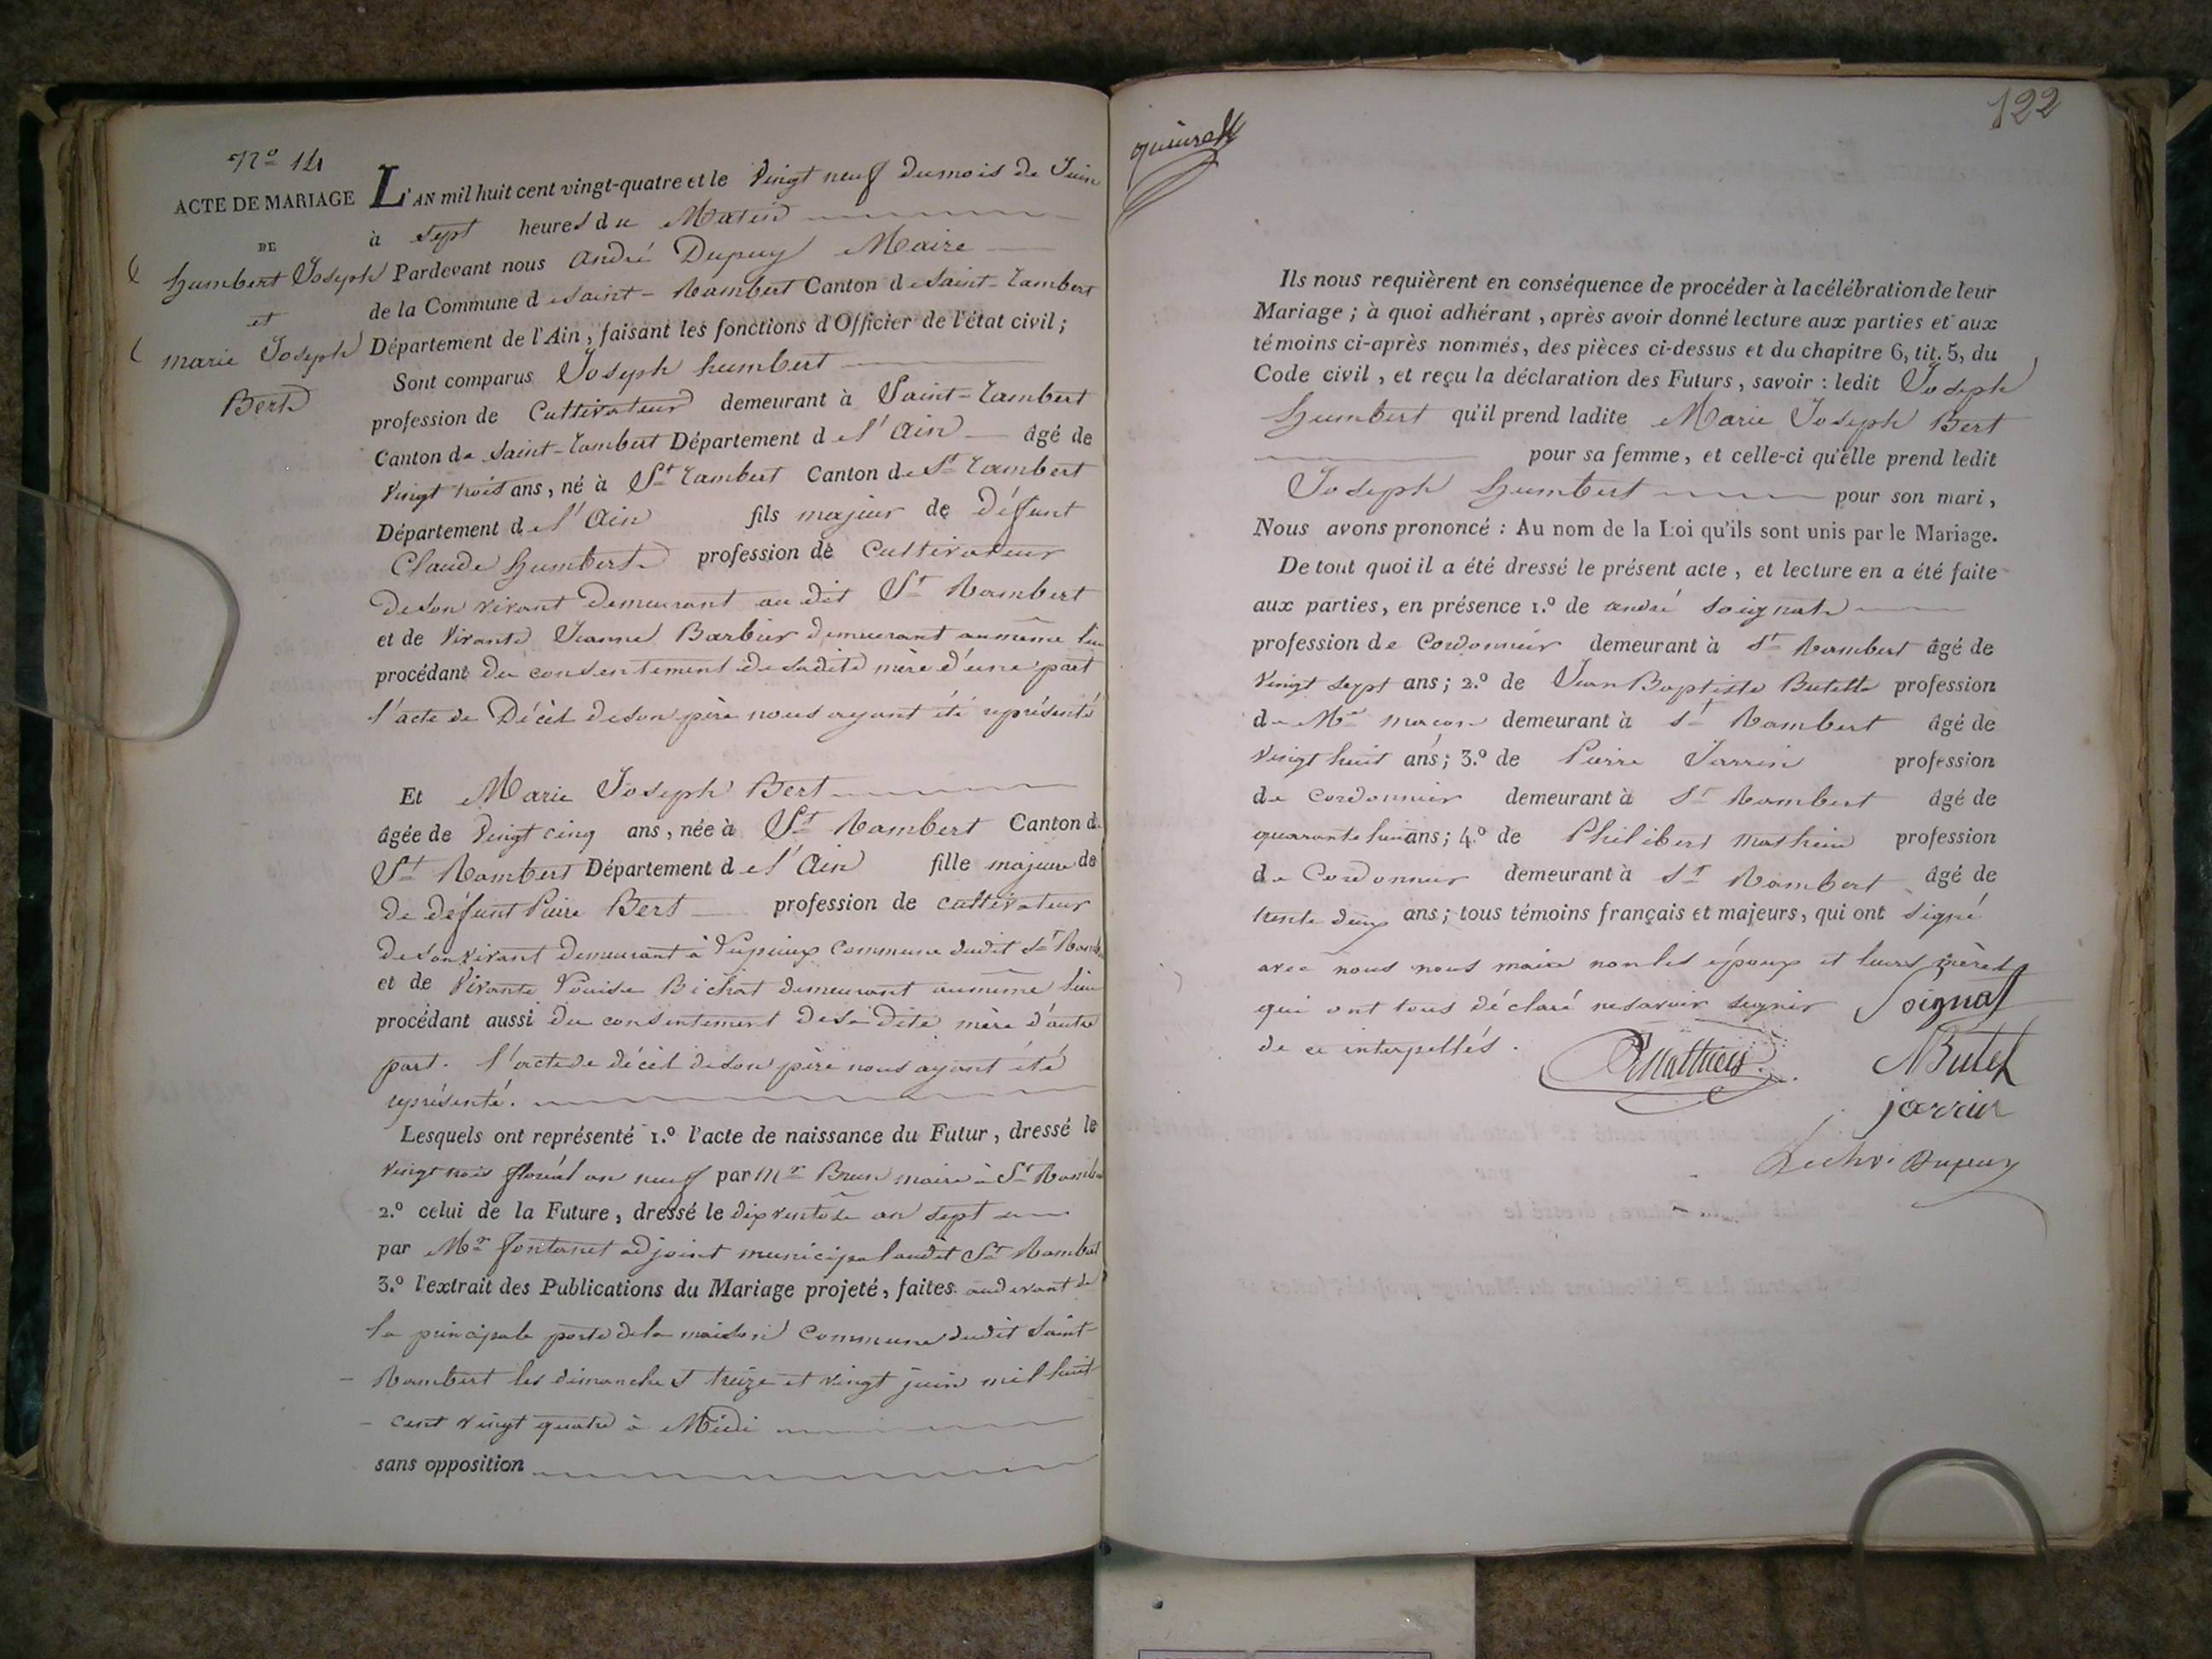 N.º 14
ACTE DE MARIAGE
DE
humbert Joseph
et
marie Joseph
Bert
L'AN mil huit cent vingt-quatre et le Vingt neuf du mois de Juin
à sept heures du Matin
Pardevant nous André Dupuy Maire
de la Commune de saint-Rambert Canton de saint-Rambert
Département de l'Ain, faisant les fonctions d'Officier de l'état civil;
Sont comparus Joseph humbert
profession de Cultivateur demeurant à Saint-Rambert
Canton de saint-Rambert Département de l'Ain âgé de
Vingt trois ans, né à St Rambert Canton de St Rambert
Département de l'Ain fils majeur de Défunt
Claude humbert profession de Cultivateur
de son vivant demeurant au dit St Rambert
et de Vivante Jeanne Barbier demeurant au même lieu
procédant du consentement de sadite mère d'une part
l'acte de Décès de son père nous ayant été représenté
Et Marie Joseph Bert
âgée de Vingt cinq ans, née à St Rambert Canton de
St Rambert Département de l'Ain fille majeure de
de défunt Pierre Bert profession de cultivateur
de son vivant demeurant à commune dudit St Rambe
et de Vivante Louise Bichat demeurant au même lieu
procédant aussi du consentement de sa dite mère d'autre
part. l'acte de décès de son père nous ayant été
représenté.
Lesquels ont représenté 1.º l'acte de naissance du Futur, dressé le
Vingt trois floréal an neuf par Mr Brun maire à St Rambe
2.º celui de la Future, dressé le dix ventôse an sept
par Mr fontanet adjoint municipal audit St Rambert
3.º l'extrait des Publications du Mariage projeté, faites audevant de
la principale porte de la maison Commune dudit Saint-
- Rambert les dimanches treize et vingt juin mil huit
- cent vingt quatre à Midi
sans opposition
122
Ils nous requièrent en conséquence de procéder à la célébration de leur
Mariage; à quoi adhérant, après avoir donné lecture aux parties et aux
témoins ci-après nommés, des pièces ci-dessus et du chapitre 6, tit. 5, du
Code civil, et reçu la déclaration des Futurs, savoir: ledit Joseph
humbert qu'il prend ladite Marie Joseph Bert
pour sa femme, et celle-ci qu'elle prend ledit
Joseph humbert pour son mari,
Nous avons prononcé: Au nom de la Loi qu'ils sont unis par le Mariage.
De tout quoi il a été dressé le présent acte, et lecture en a été faite
aux parties, en présence 1.º de andré soignat
profession de Cordonnier demeurant à St Rambert âgé de
Vingt sept ans; 2.º de Jean Baptiste Butette profession
de Me maçon demeurant à St Rambert âgé de
Vingt huit ans; 3.º de Pierre Jarrin profession
de cordonnier demeurant à St Rambert âgé de
quarante huit ans; 4.º de Philibert mathieu profession
de Cordonnier demeurant à St Rambert âgé de
trente deux ans; tous témoins français et majeurs, qui ont signé
avec nous nous maire non les époux et leurs mères
qui ont tous déclaré ne savoir signer Soignat
de ce interpellés. Mathieu Butet
jarrin
Dupuy